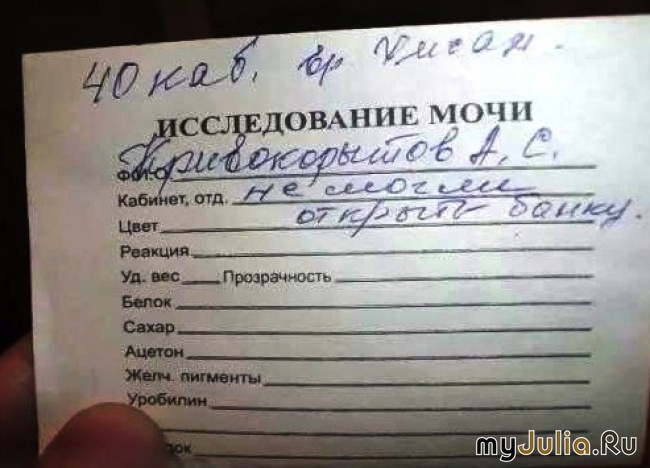 40 каб. вр
ИССЛЕДОВАНИЕ МОЧИ
Ф.И.О. Кривокорытов А. С.
Кабинет, отд. не могли
Цвет открыть банку.
Реакция
Уд. вес Прозрачность
Белок
Сахар
Ацетон
Желч. пигменты
Уробилин
myJulia.Ru